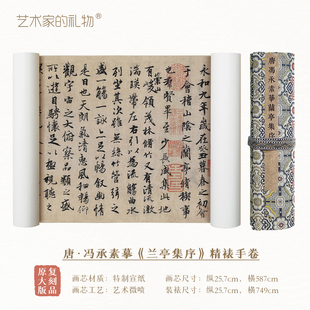 艺术家的礼物®
永和九年歲在癸丑暮春之初會
于會稽山陰之蘭亭脩稧事
也羣賢畢至少長咸集此地
有崇山峻領茂林脩竹又有清流激
湍暎帶左右引以為流觴曲水
列坐其次雖無絲竹管弦之
盛一觴一詠亦足以暢敘幽情
是日也天朗氣清惠風和暢仰
觀宇宙之大俯察品類之盛
所以遊目騁懷足以極視聽
唐馮承素摹蘭亭集序
唐·冯承素摹《兰亭集序》精裱手卷
原大版
复刻品
画芯材质：特制宣纸
画芯尺寸：纵25.7cm，横587cm
画芯工艺：艺术微喷
装裱尺寸：纵25.7cm，横749cm